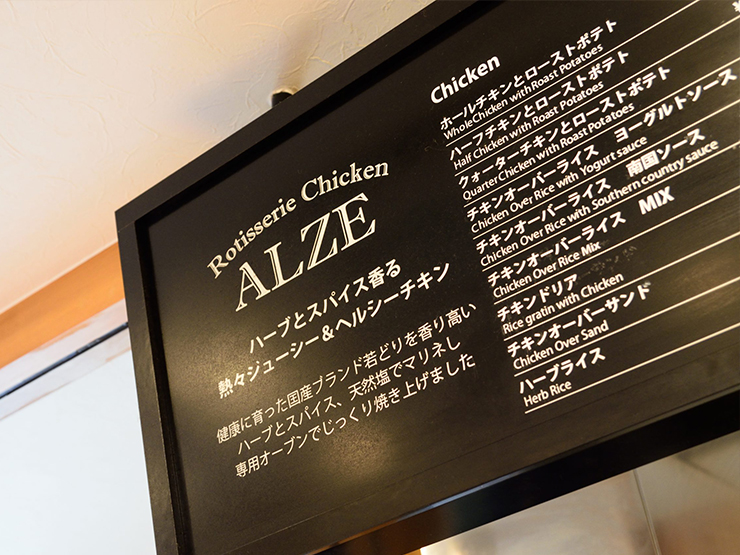 Rotisserie Chicken
ALZE
ハーブとスパイス香る
熱々ジューシー&ヘルシーチキン
健康に育った国産ブランド若どりを香り高い
ハーブとスパイス、天然塩でマリネし
専用オーブンでじっくり焼き上げました
Chicken
ホールチキンとローストポテト
Whole Chicken with Roast Potatoes
ハーフチキンとローストポテト
Half Chicken with Roast Potatoes
クォーターチキンとローストポテト
Quarter Chicken with Roast Potatoes
チキンオーバーライス ヨーグルトソース
Chicken Over Rice with Yogurt sauce
チキンオーバーライス 南国ソース
Chicken Over Rice with Southern country sauce
チキンオーバーライス MIX
Chicken Over Rice Mix
チキンドリア
Rice gratin with Chicken
チキンオーバーサンド
Chicken Over Sand
ハーブライス
Herb Rice